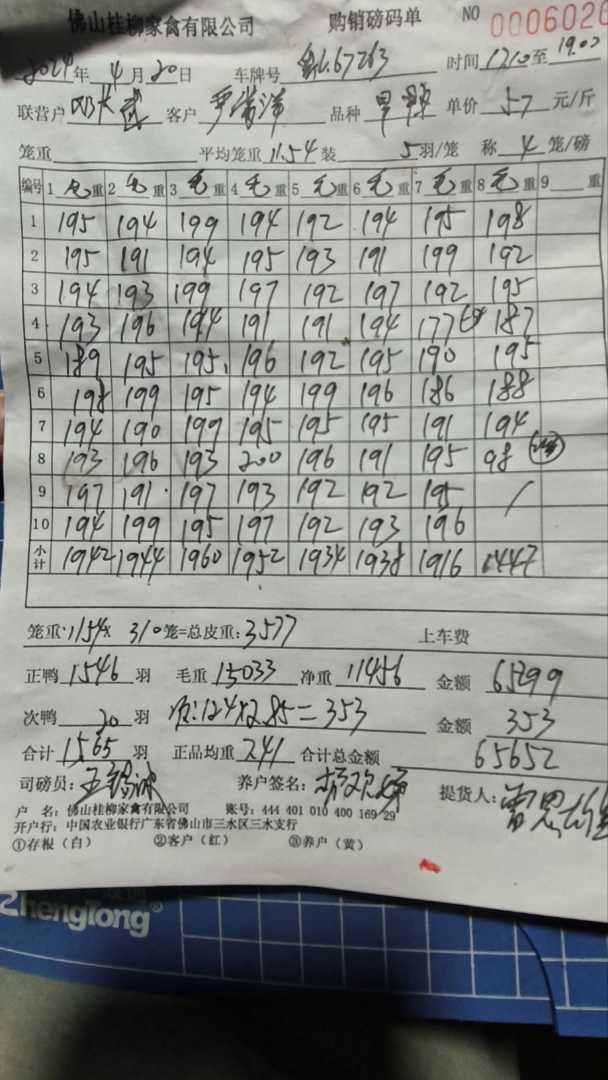 佛山桂柳家禽有限公司 购销磅码单 NO 0006020
2024年 4月20日 车牌号 L67263 时间 1710至 19.00
联营户 客户 品种 单价 57 元/斤
笼重 平均笼重 11.54 装 5羽/笼 称 4 笼/磅
编号 1 毛重 2 毛重 3 毛重 4 毛重 5 毛重 6 毛重 7 毛重 8 毛重 9 重
1 195 194 199 194 192 194 195 198
2 195 191 194 195 193 191 199 192
3 194 193 199 197 192 197 192 195
4 193 196 194 191 191 194 177 187
5 189 195 195 196 192 195 190 195
6 198 199 195 194 199 196 186 188
7 194 190 199 195 195 195 191 194
8 193 196 193 200 196 191 195 98
9 197 191 197 193 192 192 195 /
10 194 199 195 197 192 193 196
小计 1942 1944 1960 1952 1934 1938 1916 1447
笼重:1154x 310笼=总皮重:3577 上车费
正鸭 1546 羽 毛重 15033 净重 11456 金额 65299
次鸭 20 羽 次:124x2.85=353 金额 353
合计 1565 羽 正品均重 741 合计总金额 65652
司磅员: 养户签名: 提货人:
户 名:佛山桂柳家禽有限公司 账号:444 401 010 400 169 29
开户行:中国农业银行广东省佛山市三水区三水支行
①存根(白) ②客户(红) ③养户(黄)
ZhengTong®